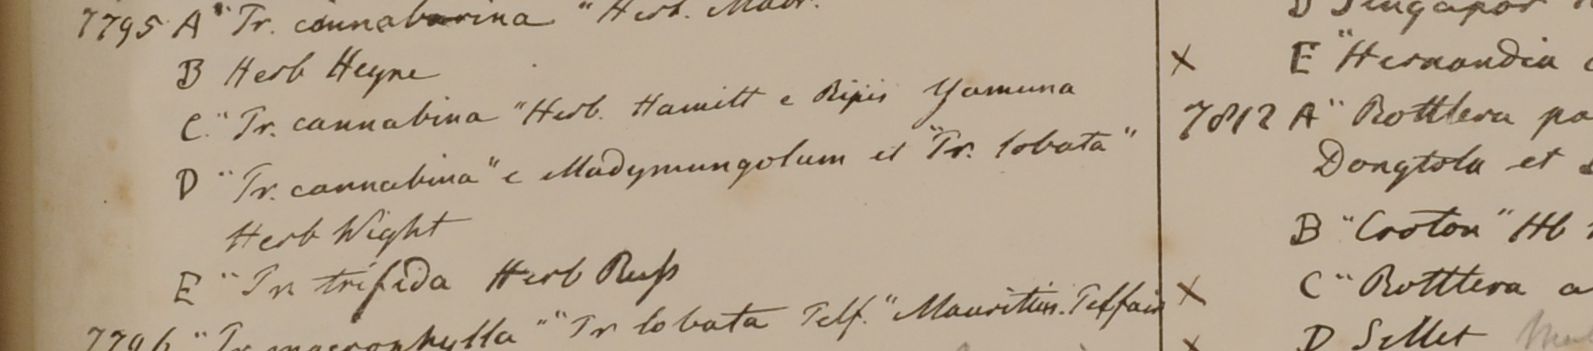 7795 A "Tr. cannabina" Herb. Madr.
B Herb Heyne
C. "Tr. cannabina" Herb. Hamilt e Ripis Yamuna
D "Tr. cannabina" e Madymungolum et "Tr. lobata"
Herb Wight
E "Tr trifida Herb Russ
7796 "Tr macrophylla" "Tr lobata Telf." Mauritius. Telfair
D Singapor
X E "Hernandia
7812 A "Rottlera
Dongtola et
B "Croton" Hb
X C "Rottlera
X D Sillet